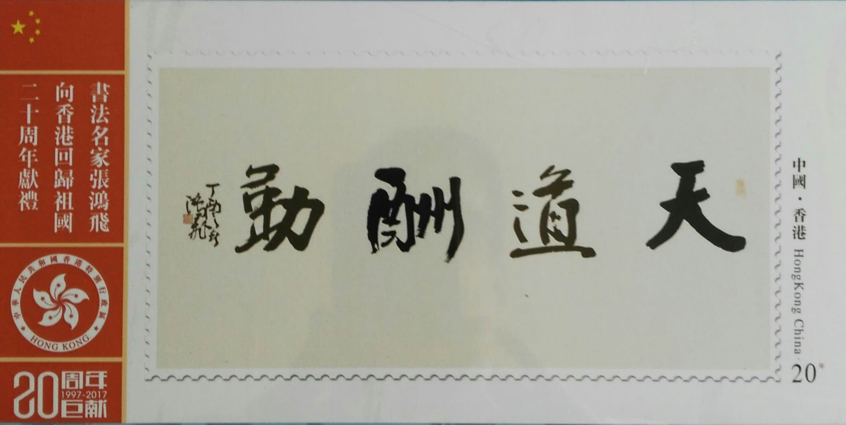 書法名家張鴻飛
向香港回歸祖國
二十周年獻禮
中華人民共和國香港特別行政區
HONG KONG
20周年
1997-2017
巨献
天道酬勤
中國·香港 HongKong China
20